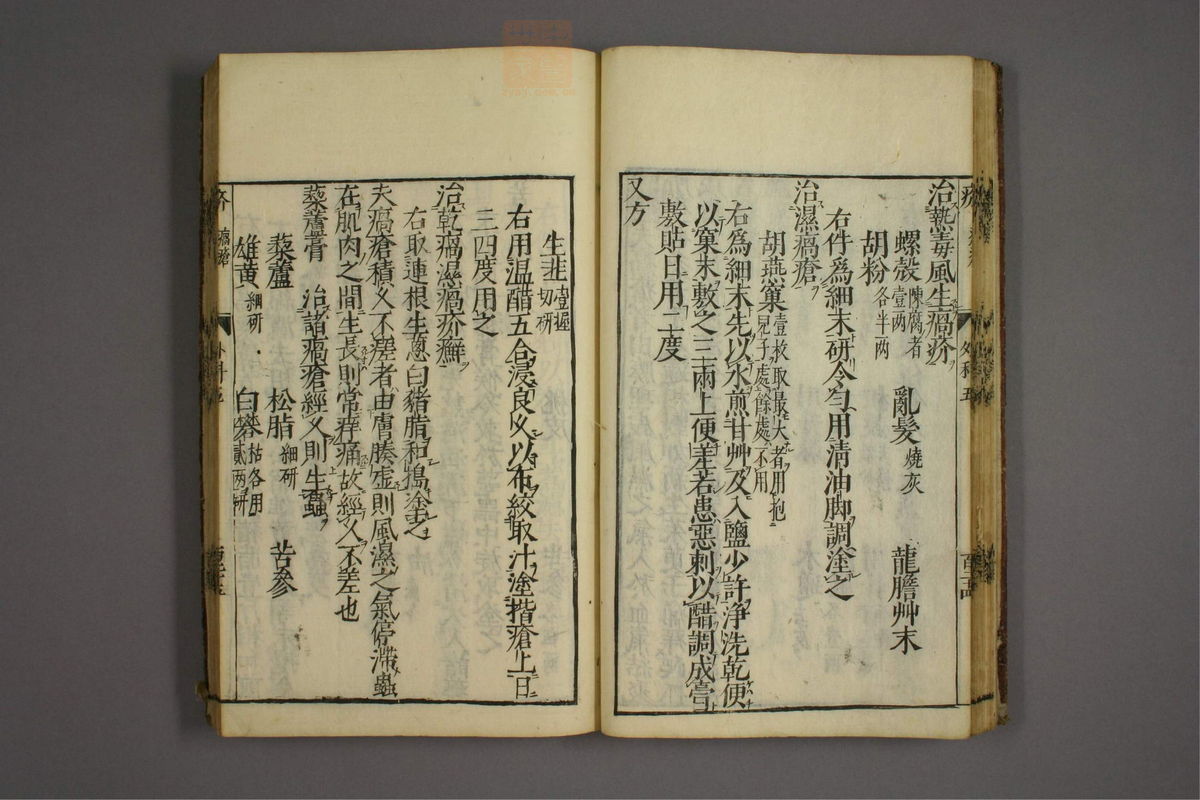 治熱毒風生瘑疥
螺殼陳腐者壹两 亂髮燒灰 龍膽艸末
胡粉各半两
右件爲細末研令勻用清油脚調塗之
治濕瘑瘡
胡燕窠壹枚取最大者用抱見子處餘處不用
右爲細末先以水煎甘艸及入鹽少許淨洗乾便
以窠末敷之三兩上便差若患惡刺以醋調成膏
敷貼日用二度
又方
生韭壹握切研
右用温醋五合浸良久以布絞取汁塗揩瘡上日
三四度用之
治乾瘑濕瘑疥癬
右取連根生葱白豬脂和擣塗之
夫瘑瘡積久不瘥者由膚腠虚則風濕之氣停滯蟲
在肌肉之間生長則常痒痛故經久不差也
藜蘆膏 治諸瘑瘡經久則生蟲
藜蘆 松脂細研 苦參
雄黃細研 白礬枯各用貳两研
瘑瘡
外科五